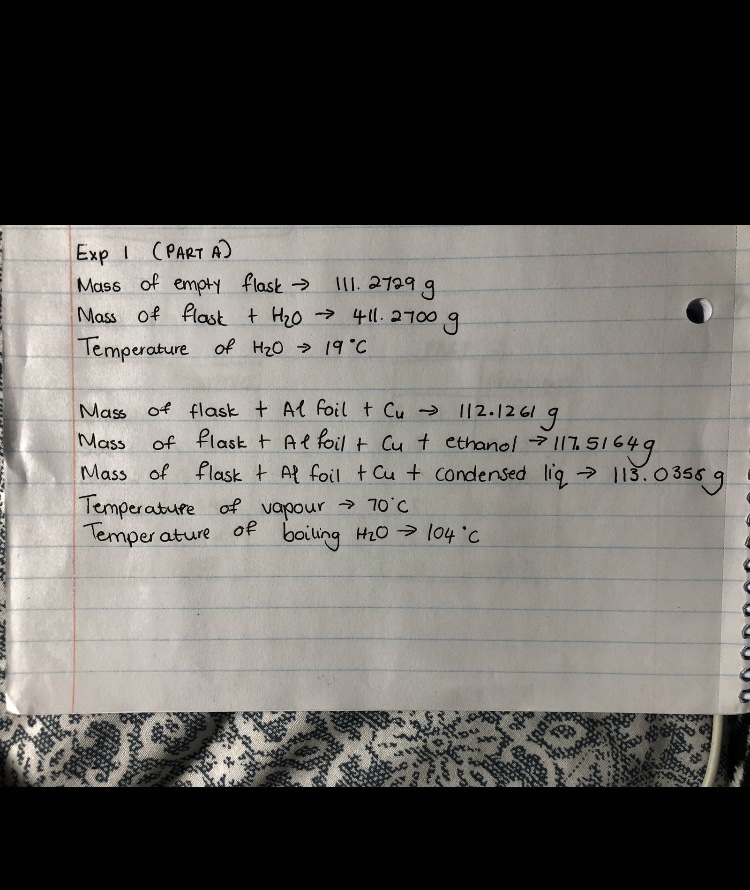 Exp 1 (PART A)
Mass of empty flask → 111.2729 g
Mass of flask + H2O → 411.2700 g
Temperature of H2O → 19°C
Mass of flask + Al foil + Cu → 112.1261 g
Mass of flask + Al foil + Cu + ethanol → 117.5164g
Mass of flask + Al foil + Cu + condensed liq → 113.0355 g
Temperature of vapour → 70°C
Temperature of boiling H2O → 104°C